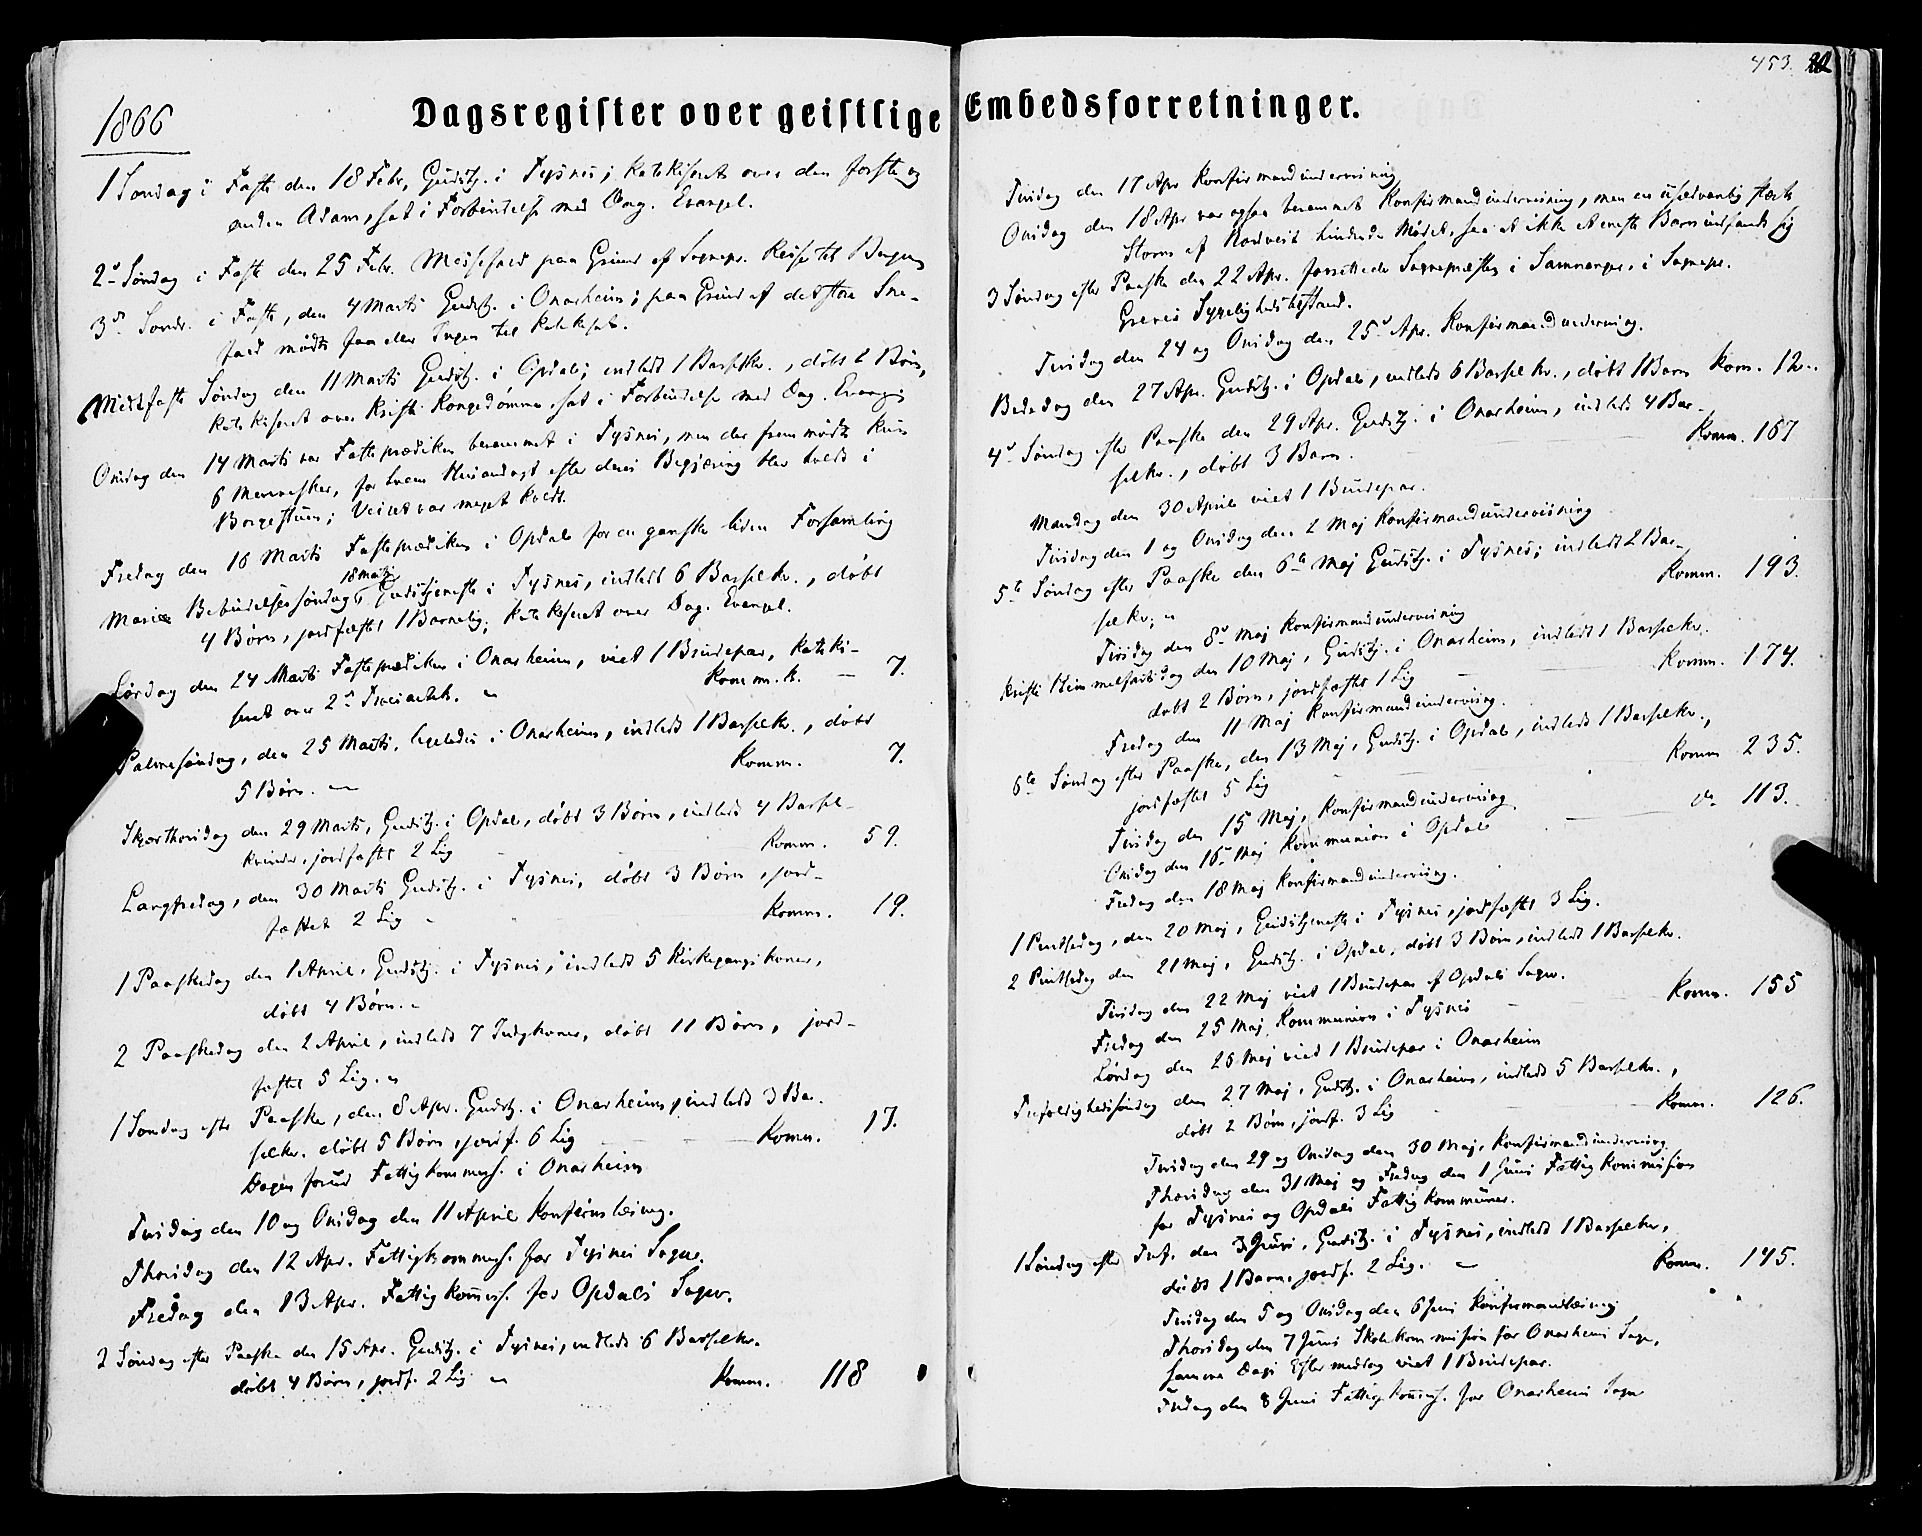 453.
1866
Dagsregister over geistlige Embedsforretninger.
1 Søndag i Faste den 18 Febr, Gudstj. i Tysnes; katekiseret over den første og
anden Adam, sat i Forbindelse med Dag. Evangel.
2d Søndag i Faste den 25 Febr. Messefald paa Grund af Sognepr. Reise til Bergen
3de Sønd. i Faste, den 4 Marts Gudstj. i Onarheim; paa Grund af det store Sne-
fald mødte faa eller Ingen til Katekisat.
Midfaste Søndag den 11 Marts Gudstj. i Opdal; indledt 1 Barselkv., døbt 2 Børn,
katekiseret over Kristi Kongedømme sat i Forbindelse med Dag. Evang.
Onsdag den 14 Marts var Fasteprædiken berammet i Tysnes, men der fremmødte kun
6 Mennesker, for hvem Husandagt efter deres Begjæring blev holdt i
Borgestuen; Veiret var meget koldt.
Fredag den 16 Marts Fasteprædiken i Opdal for en ganske liden Forsamling
18 Marts
Mariæ Bebudelsessøndag Gudstjeneste i Tysnes, indledt 6 Barselkv., døbt
4 Børn, jordfæstet 1 Barnelig; katekiseret over Dag. Evangel.
Lørdag den 24 Marts Fasteprædiken i Onarheim, viet 1 Brudepar, kateki-
seret over 2d Troesartikl. Komm. 7.
Palmesøndag, den 25 Marts, ligeledes i Onarheim, indledt 1 Barselkv., døbt
5 Børn. Komm. 7.
Skjærthorsdag den 29 Marts, Gudstj. i Opdal, døbt 3 Børn, indledt 4 Barsel-
kvinder, jordfæstet 2 Lig Komm. 59.
Langfredag, den 30 Marts Gudstj. i Tysnes, døbt 3 Børn, jord-
fæstet 2 Lig Komm. 19.
1 Paaskedag den 1 April, Gudstj. i Tysnes, indledt 5 Kirkegangskoner,
døbt 4 Børn.
2 Paaskedag den 2 April, indledt 7 Indgkoner, døbt 11 Børn, jord-
fæstet 5 Lig.
1 Søndag efter Paaske, den 8 Apr. Gudstj. i Onarheim, indledt 3 Bar-
selkv. døbt 5 Børn, jordf. 6 Lig Komm. 17.
Dagen forud Fattigkommiss. i Onarheim
Tirsdag den 10 og Onsdag den 11 April Konfirmlæsning.
Thorsdag den 12 Apr. Fattigkommiss. for Tysnes Sogn.
Fredag den 13 Apr. Fattigkomiss. for Opdals Sogn.
2 Søndag efter Paaske den 15 Apr. Gudstj. i Tysnes, indledt 6 Barselkv.
døbt 4 Børn, jordf. 2 Lig Komm. 118
Tirsdag den 17 Apr Konfirmandundervisning
Onsdag den 18 Apr var ogsaa berammet Konfirmandundervisning, men en usædvanlig stærk
Storm af Nordvest hindrede Mødet, saa at ikke et eneste Barn indfandt sig
3 Søndag efter Paaske den 22 Apr. forrettede Sognepræsten i Samnanger, i Sognepr.
Greves Sygelighedstilstand.
Tirsdag den 24 og Onsdag den 25d Apr. Konfirmandundervisning.
Bededag den 27 Apr. Gudstj. i Opdal, indledt 6 Barselkv., døbt 1 Barn Kom. 12.
4d Søndag efter Paaske den 29 Apr. Gudstj. i Onarheim, indledt 4 Bar-
selkv., døbt 3 Børn. Komm. 167
Mandag den 30 April viet 1 Brudepar.
Tirsdag den 1 og Onsdag den 2 Maj Konfirmandundervisning
5te Søndag efter Paaske den 6te Maj Gudstj. i Tysnes; indledt 2 Bar-
selkv. Komm. 193.
Tirsdag den 8d Maj Konfirmandundervisning
Kristi Himmelfartsdag den 10 Maj, Gudstj. i Onarheim, indledt 1 Barselkv.
døbt 2 Børn, jordfæstet 1 Lig Komm. 174.
Fredag den 11 Maj Konfirmandundervisning.
6te Søndag efter Paaske, den 13 Maj, Gudstj. i Opdal, indledt 1 Barselkv.,
jordfæstet 5 Lig Komm 235.
Tirsdag den 15 Maj, Konfirmandundervisning.
Onsdag den 16d Maj Kommunion i Opdal do 113.
Fredag den 18 Maj Konfirmandundervisning.
1 Pintsedag, den 20 Maj, Gudstjeneste i Tysnes, jordfæstet 3 Lig.
2 Pintsedag den 21 Maj, Gudstj. i Opdal, døbt 3 Børn, indledt 1 Barselkv.
Tirsdag den 22 Maj viet 1 Brudepar af Opdals Sogn.
Fredag den 25 Maj Kommunion i Tysnes Komm. 155
Lørdag den 26 Maj viet 1 Brudepar i Onarheim
Trefoldighedssøndag den 27 Maj, Gudstj. i Onarheim, indledt 5 Barselkv.,
døbt 2 Børn, jordf. 3 Lig Komm. 126.
Tirsdag den 29 og Onsdag den 30 Maj, Konfirmandundervisning
Thorsdag den 31 Maj og Fredag den 1 Juni Fattigkommission
for Tysnes og Opdals Fattigkommuner.
1 Søndag efter Tref. den 3 Juni, Gudstj. i Tysnes, indledt 1 Barselkv,
døbt 1 Barn, jordf. 2 Lig. Komm. 145.
Tirsdag den 5 og Onsdag den 6 Juni Konfirmandlæsning
Thorsdag den 7 Juni Skolekommission for Onarheims Sogn,
samme Dags Eftermiddag viet 1 Brudepar.
Fredag den 8 Juni Fattigkomiss. for Onarheims Sogn